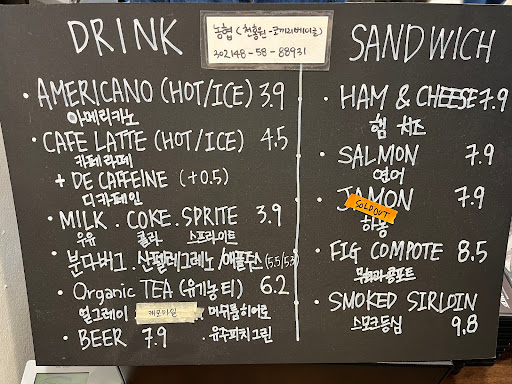 DRINK
농협 (천홍원-코끼리베이글)
302148-58-88931
SANDWICH
· AMERICANO (HOT/ICE) 3.9
아메리카노
· CAFE LATTE (HOT/ICE) 4.5
카페라떼
+ DE CAFFEINE (+0.5)
디카페인
· MILK . COKE . SPRITE 3.9
우유 콜라 스프라이트
· 분다버그 . 산펠레그레노 /애플쥬스 (5.5/5.3)
· Organic TEA (유기농티) 6.2
얼그레이 캐모마일 . 머쉬룸히어로
. 유수피치그린
· BEER 7.9
· HAM & CHEESE 7.9
햄 치즈
· SALMON 7.9
연어
· JAMON 7.9
SOLD OUT
하몽
· FIG COMPOTE 8.5
무화과콩포트
· SMOKED SIRLOIN
스모크등심 9.8